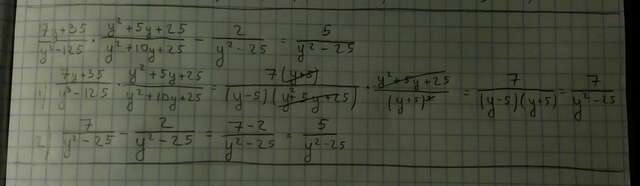 (7y+35)/(y³-125) · (y²+5y+25)/(y²+10y+25) - 2/(y²-25) = 5/(y²-25)
1) (7y+35)/(y³-125) · (y²+5y+25)/(y²+10y+25) = 7(y+5)/((y-5)(y²+5y+25)) · (y²+5y+25)/(y+5)² = 7/((y-5)(y+5)) = 7/(y²-25)
2) 7/(y²-25) - 2/(y²-25) = (7-2)/(y²-25) = 5/(y²-25)